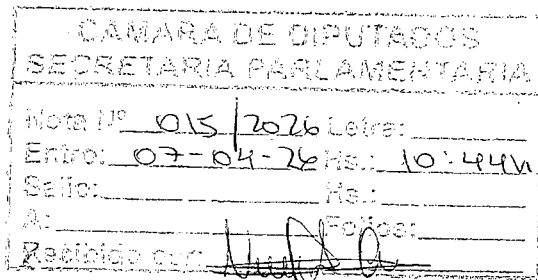 CAMARA DE DIPUTADOS
SECRETARIA PARLAMENTARIA
Nota Nº 015/2026 Letra:
Entro: 07-04-26 Hs.: 10:44
Salio: Hs.:
A: Folios:
Recibido por: